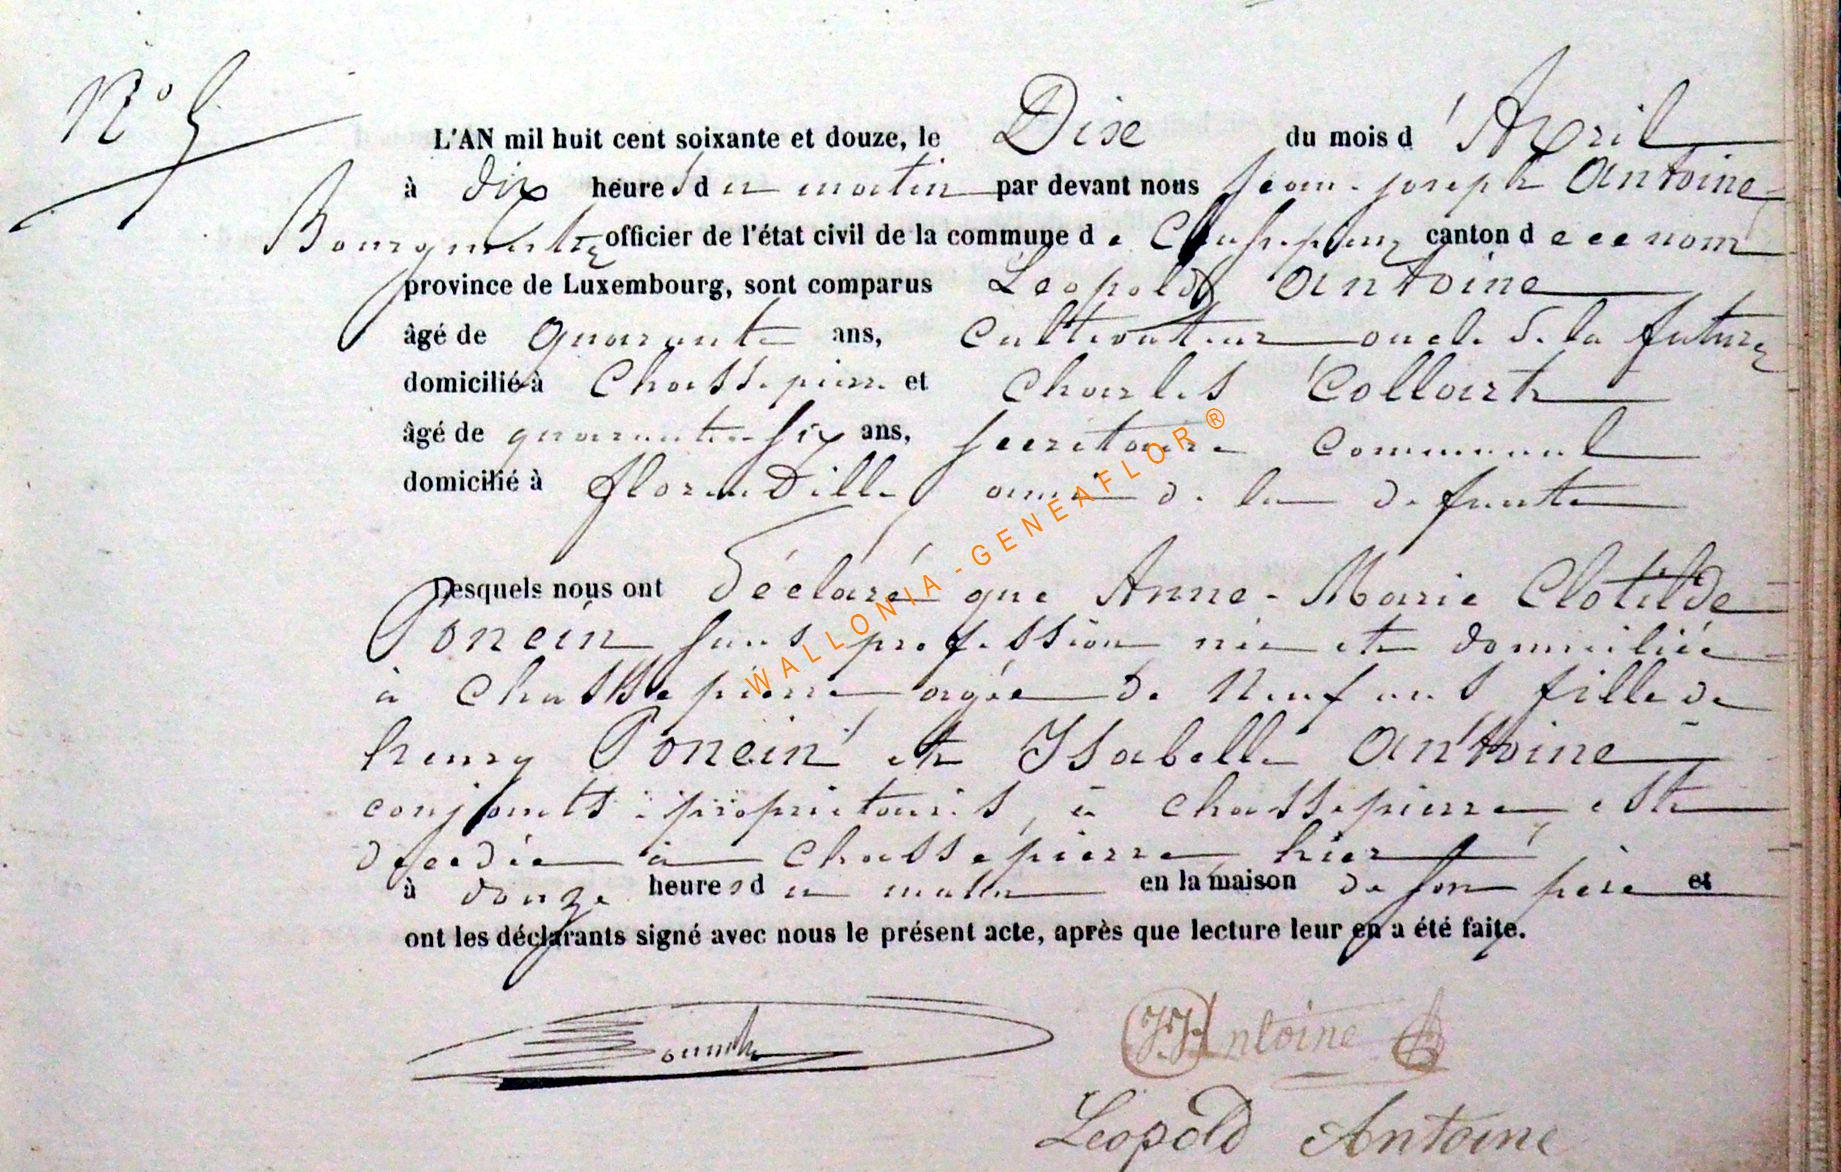 N° 5
L'AN mil huit cent soixante et douze, le Dixe du mois d'Avril
à dix heures du matin par devant nous Jean-joseph Antoine
Bourgmestre officier de l'état civil de la commune de Chassepierre canton de ce nom
province de Luxembourg, sont comparus Leopold Antoine
âgé de quarante ans, Cultivateur oncle de la future
domicilié à Chassepierre et Charles Collart
âgé de quarante-six ans, secretaire Communal
domicilié à florenville ami de la defunte
Lesquels nous ont déclaré que Anne-Marie Clotilde
Poncin sans profession née et domiciliée
à Chassepierre, agée de Neuf ans, fille de
henry Poncin et Isabelle Antoine
conjoints proprietaires, à chassepierre, est
decedée à chassepierre, hier
à douze heures du matin en la maison de son père et
ont les déclarants signé avec nous le présent acte, après que lecture leur en a été faite.
JJ Antoine
Léopold Antoine
WALLONIA-GENEAFLOR®